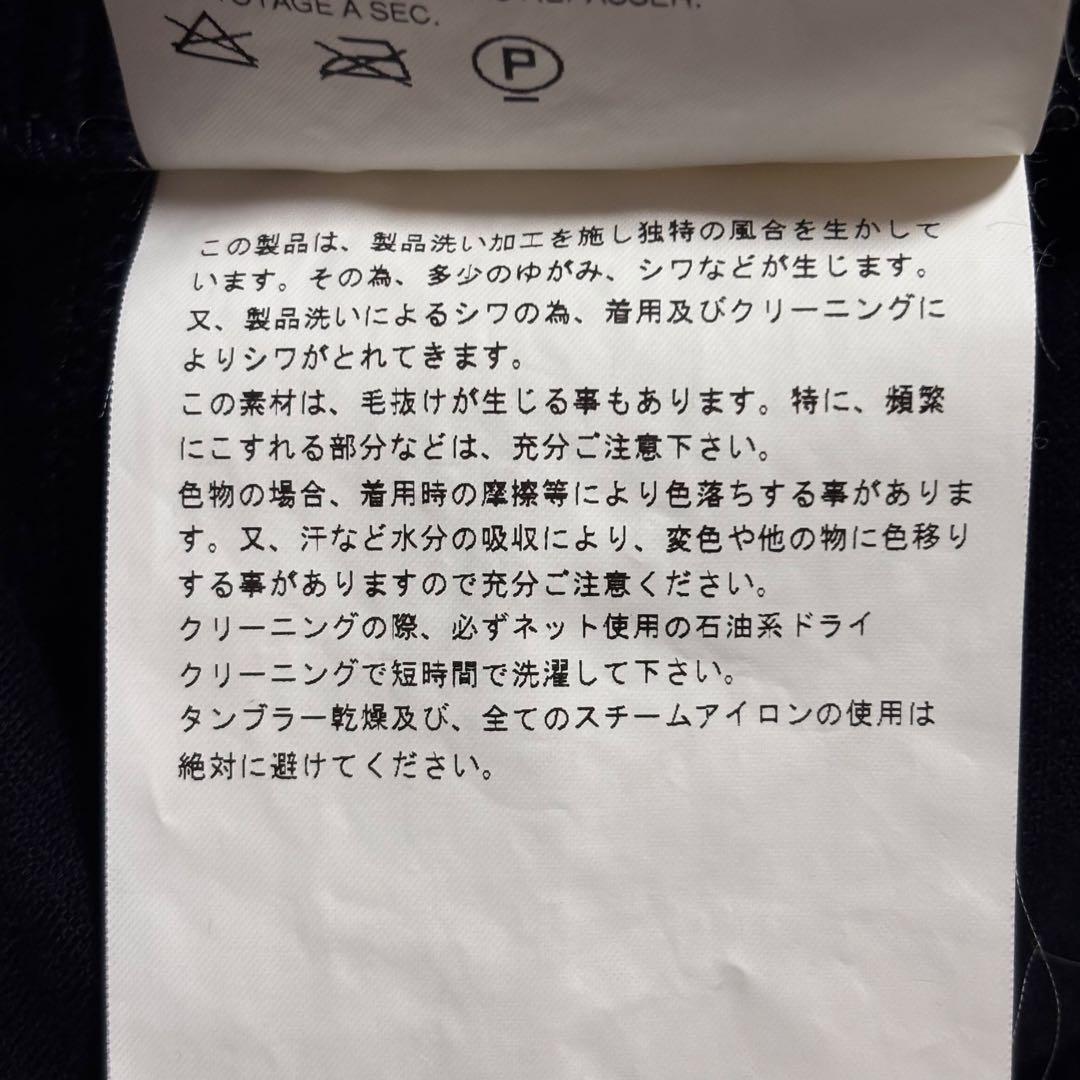 TOYAGE A SEC.
REPASSER.
P
この製品は、製品洗い加工を施し独特の風合を生かして
います。その為、多少のゆがみ、シワなどが生じます。
又、製品洗いによるシワの為、着用及びクリーニングに
よりシワがとれてきます。
この素材は、毛抜けが生じる事もあります。特に、頻繁
にこすれる部分などは、充分ご注意下さい。
色物の場合、着用時の摩擦等により色落ちする事がありま
す。又、汗など水分の吸収により、変色や他の物に色移り
する事がありますので充分ご注意ください。
クリーニングの際、必ずネット使用の石油系ドライ
クリーニングで短時間で洗濯して下さい。
タンブラー乾燥及び、全てのスチームアイロンの使用は
絶対に避けてください。